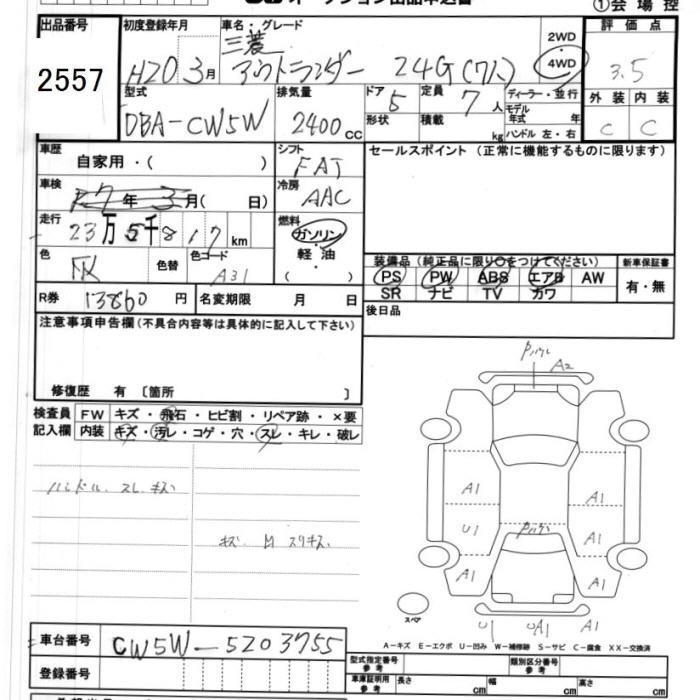 オークション出品申込書
①会場控
出品番号 初度登録年月 車名・グレード 評価点
2557
H20 3月 三菱 アウトランダー 24G(7人) 2WD 4WD 3.5
型式 排気量 ドア 定員 ディーラー・並行 外装 内装
DBA-CW5W 2400CC 5 7人 モデル年式 年 C C
形状 積載 kg ハンドル 左・右
車歴 自家用・( ) シフト FAT セールスポイント (正常に機能するものに限ります)
車検 R7年 3月( 日) 冷房 AAC
走行 23万5千817km 燃料 ガソリン・軽油 ( )
色 灰 色替 色コード A31
装備品 (純正品に限り〇をつけてください) 新車保証書
PS PW ABS エアB AW 有・無
SR ナビ TV カワ
R券 13860円 名変期限 月 日 後日品
注意事項申告欄(不具合内容等は具体的に記入して下さい)
修復歴 有 〔箇所 〕
検査員 FW キズ・飛石・ヒビ割・リペア跡・×要
記入欄 内装 キズ・汚レ・コゲ・穴・スレ・キレ・破レ
ハンドル スレ キズ
A2
A1 A1
U1 A1
A1 A1
スペア
U1 UA1 A1
A-キズ E-エクボ U-凹み W-補修跡 S-サビ C-腐食 XX-交換済
車台番号 CW5W-5203755
登録番号
型式指定番号参考 類別区分番号参考
車庫証明用参考 長さ cm 幅 cm 高さ cm